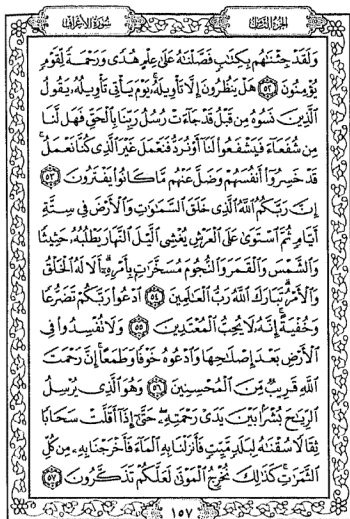 الجزء الثامن
سورة الأعراف
وَلَقَدْ جِئْنَٰهُم بِكِتَٰبٍ فَصَّلْنَٰهُ عَلَىٰ عِلْمٍ هُدًى وَرَحْمَةً لِّقَوْمٍ
يُؤْمِنُونَ ٥٢ هَلْ يَنظُرُونَ إِلَّا تَأْوِيلَهُۥ يَوْمَ يَأْتِى تَأْوِيلُهُۥ يَقُولُ
ٱلَّذِينَ نَسُوهُ مِن قَبْلُ قَدْ جَآءَتْ رُسُلُ رَبِّنَا بِٱلْحَقِّ فَهَل لَّنَا
مِن شُفَعَآءَ فَيَشْفَعُوا۟ لَنَآ أَوْ نُرَدُّ فَنَعْمَلَ غَيْرَ ٱلَّذِى كُنَّا نَعْمَلُ
قَدْ خَسِرُوٓا۟ أَنفُسَهُمْ وَضَلَّ عَنْهُم مَّا كَانُوا۟ يَفْتَرُونَ ٥٣
إِنَّ رَبَّكُمُ ٱللَّهُ ٱلَّذِى خَلَقَ ٱلسَّمَٰوَٰتِ وَٱلْأَرْضَ فِى سِتَّةِ
أَيَّامٍ ثُمَّ ٱسْتَوَىٰ عَلَى ٱلْعَرْشِ يُغْشِى ٱلَّيْلَ ٱلنَّهَارَ يَطْلُبُهُۥ حَثِيثًا
وَٱلشَّمْسَ وَٱلْقَمَرَ وَٱلنُّجُومَ مُسَخَّرَٰتٍۭ بِأَمْرِهِۦٓ أَلَا لَهُ ٱلْخَلْقُ
وَٱلْأَمْرُ تَبَارَكَ ٱللَّهُ رَبُّ ٱلْعَٰلَمِينَ ٥٤ ٱدْعُوا۟ رَبَّكُمْ تَضَرُّعًا
وَخُفْيَةً إِنَّهُۥ لَا يُحِبُّ ٱلْمُعْتَدِينَ ٥٥ وَلَا تُفْسِدُوا۟ فِى
ٱلْأَرْضِ بَعْدَ إِصْلَٰحِهَا وَٱدْعُوهُ خَوْفًا وَطَمَعًا إِنَّ رَحْمَتَ
ٱللَّهِ قَرِيبٌ مِّنَ ٱلْمُحْسِنِينَ ٥٦ وَهُوَ ٱلَّذِى يُرْسِلُ
ٱلرِّيَٰحَ بُشْرًۢا بَيْنَ يَدَىْ رَحْمَتِهِۦ حَتَّىٰٓ إِذَآ أَقَلَّتْ سَحَابًا
ثِقَالًا سُقْنَٰهُ لِبَلَدٍ مَّيِّتٍ فَأَنزَلْنَا بِهِ ٱلْمَآءَ فَأَخْرَجْنَا بِهِۦ مِن كُلِّ
ٱلثَّمَرَٰتِ كَذَٰلِكَ نُخْرِجُ ٱلْمَوْتَىٰ لَعَلَّكُمْ تَذَكَّرُونَ ٥٧
١٥٧